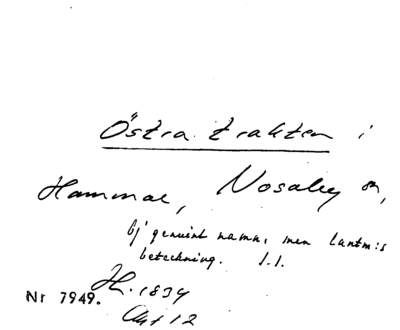 Östra trakten i
Hammar, Nosaby sn,
Ej genuint namn, men lantm:s
beteckning. J.J.
H. 1834
Akt 12
Nr 7949.